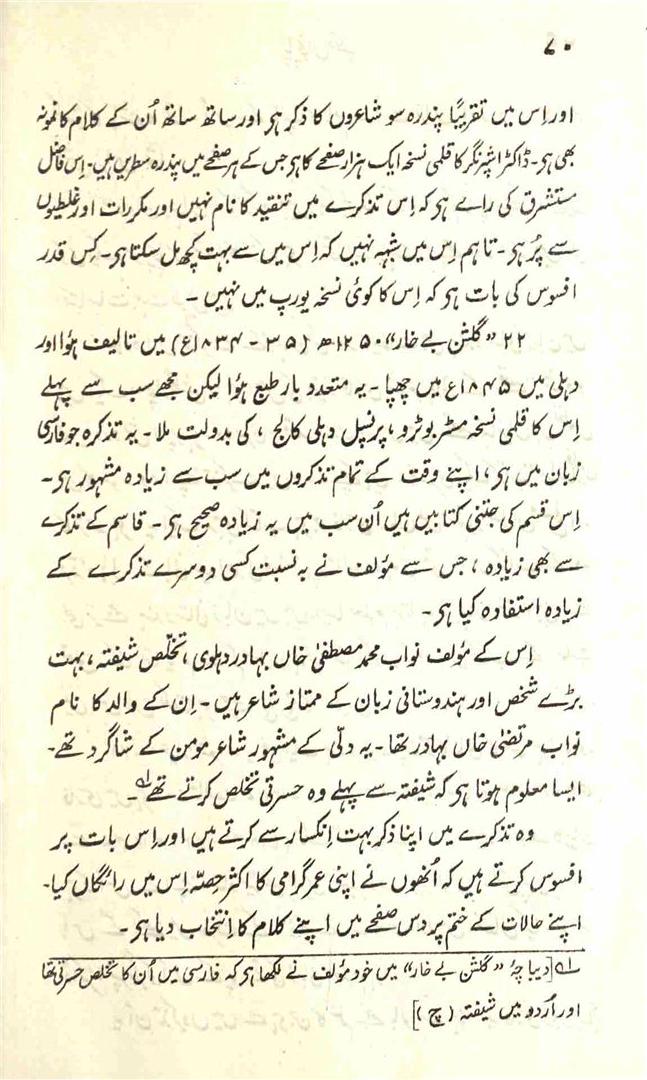 ۷۰
اور اِس میں تقریبًا پندرہ سو شاعروں کا ذکر ہی اور ساتھ ساتھ اُن کے کلام کا نمونہ
بھی ہی۔ ڈاکٹر اشپرنگر کا قلمی نسخہ ایک ہزار صفحے کا ہی جس کے ہر صفحے میں پندرہ سطریں ہیں۔ اِس فاضل
مستشرق کی رائے ہی کہ اِس تذکرے میں تنقید کا نام نہیں اور مکررات اور غلطیوں
سے پُر ہی۔ تاہم اِس میں شبہہ نہیں کہ اِس میں سے بہت کچھ مل سکتا ہی۔ کِس قدر
افسوس کی بات ہی کہ اِس کا کوئی نسخہ یورپ میں نہیں۔
۲۲ "گلشن بے خار" ۱۲۵۰ھ (۳۵ - ۱۸۳۴ع) میں تالیف ہؤا اور
دہلی میں ۱۸۴۵ع میں چھپا۔ یہ متعدد بار طبع ہؤا لیکن مجھے سب سے پہلے
اِس کا قلمی نسخہ مسٹر بوترو، پرنسپل دہلی کالج، کی بدولت ملا۔ یہ تذکرہ جو فارسی
زبان میں ہی، اپنے وقت کے تمام تذکروں میں سب سے زیادہ مشہور ہی۔
اِس قسم کی جتنی کتابیں ہیں اُن سب میں یہ زیادہ صحیح ہی۔ قاسم کے تذکرے
سے بھی زیادہ، جس سے مؤلف نے بہ نسبت کسی دوسرے تذکرے کے
زیادہ استفادہ کیا ہی۔
اِس کے مؤلف نواب محمد مصطفیٰ خاں بہادر دہلوی، تخلّص شیفتہ، بہت
بڑے شخص اور ہندوستانی زبان کے ممتاز شاعر ہیں۔ اِن کے والد کا نام
نواب مرتضیٰ خاں بہادر تھا۔ یہ دلّی کے مشہور شاعر مومن کے شاگرد تھے۔
ایسا معلوم ہوتا ہی کہ شیفتہ سے پہلے وہ حسرتی تخلص کرتے تھے ۱ہ۔
وہ تذکرے میں اپنا ذکر بہت اِنکسار سے کرتے ہیں اور اِس بات پر
افسوس کرتے ہیں کہ اُنھوں نے اپنی عمر گرامی کا اکثر حِصّہ اِس میں رائگاں کیا۔
اپنے حالات کے ختم پر دس صفحے میں اپنے کلام کا اِنتخاب دیا ہی۔
۱ہ [دیباچۂ "گلشن بے خار" میں خود مؤلف نے لکھا ہی کہ فارسی میں اُن کا تخلص حسرتی تھا
اور اُردو میں شیفتہ (چ)]